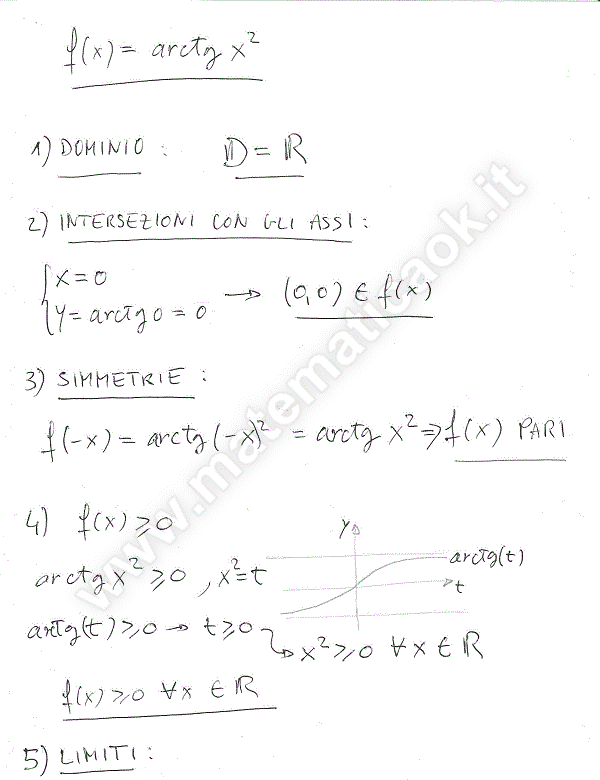 f(x) = arctg x²
1) DOMINIO : D = ℝ
2) INTERSEZIONI CON GLI ASSI :
{ x = 0
{ y = arctg 0 = 0 → (0,0) ∈ f(x)
3) SIMMETRIE :
f(-x) = arctg (-x)² = arctg x² ⇒ f(x) PARI
4) f(x) ≥ 0
y
arctg x² ≥ 0 , x² = t
arctg(t)
t
arctg(t) ≥ 0 → t ≥ 0 → x² ≥ 0 ∀x ∈ ℝ
f(x) ≥ 0 ∀x ∈ ℝ
5) LIMITI :
www.matematicaok.it